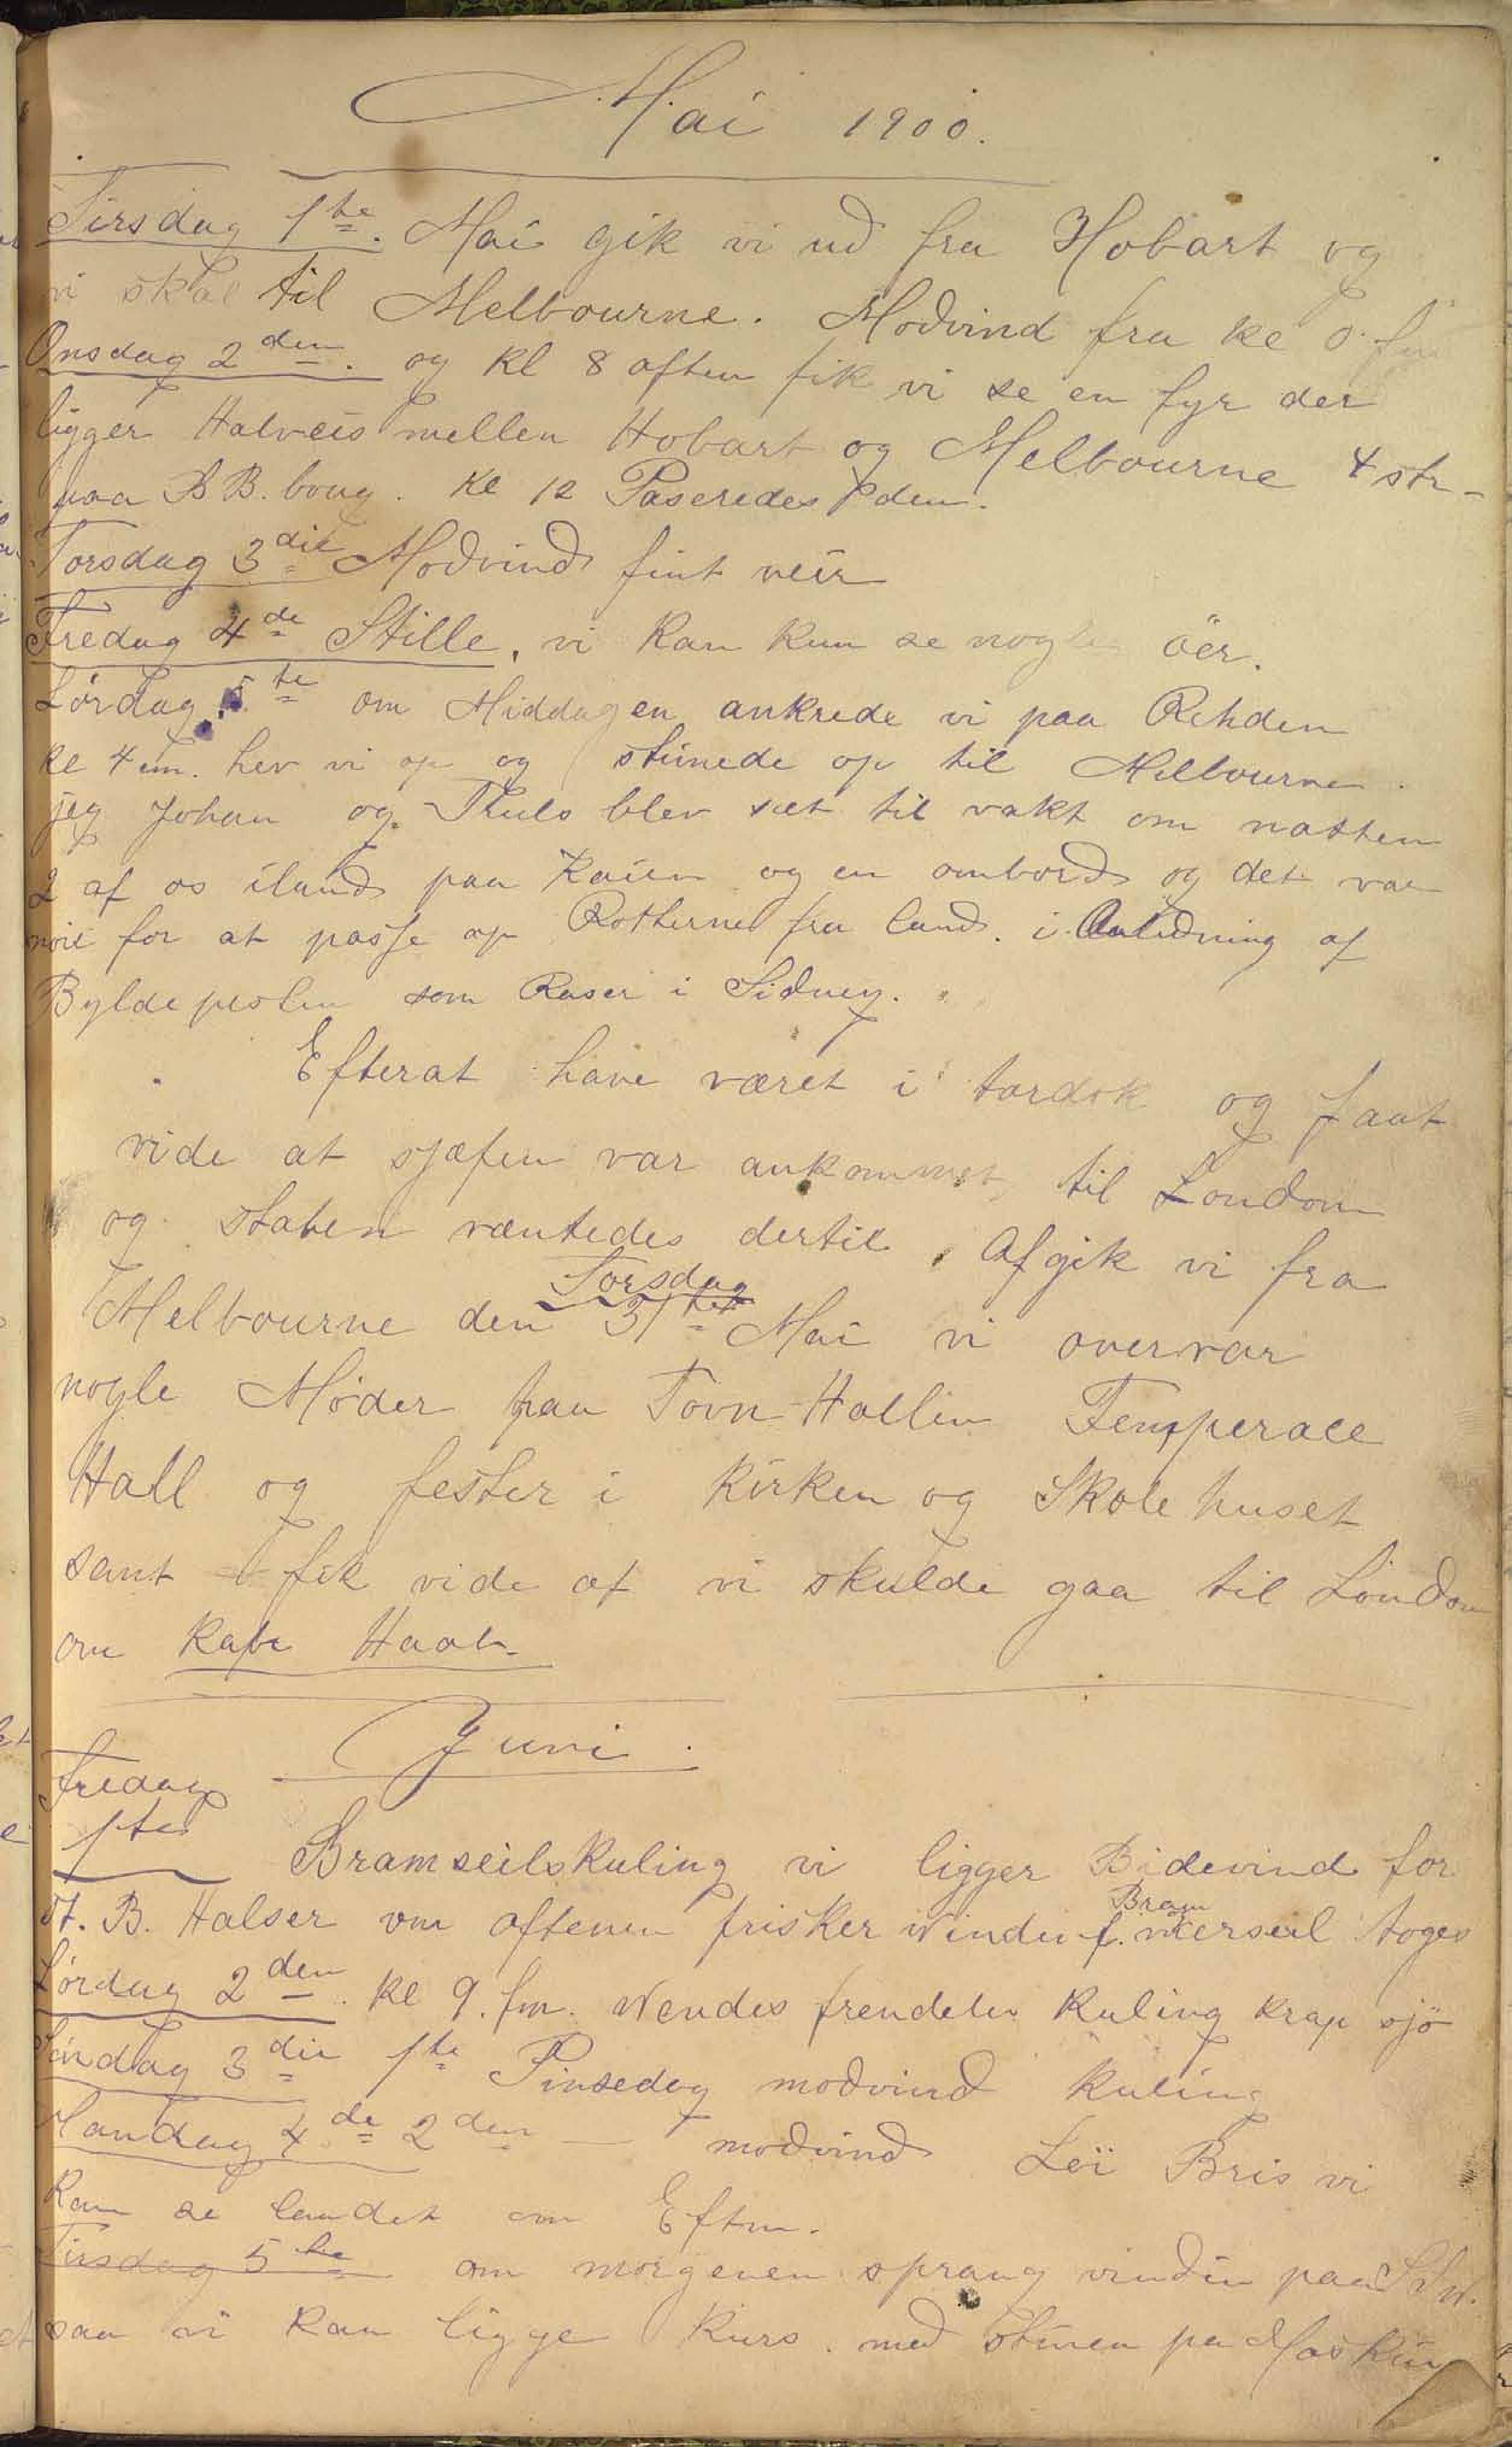 Mai 1900.
Tirsdag 1te. Mai gik vi ud fra Hobart og
vi skal til Melbourne. Modvind fra kl
Onsdag 2den. og kl 8 aften fik vi se en fyr der
ligger Halveis mellen Hobart og Melbourne 4 str-
paa B B. boug. kl 12 Paseredes den.
Torsdag 3die Modvind fint veir
Fredag 4de Stille, vi kan kun se nogle öer.
Lördag 5te om Middagen ankrede vi paa Rehden
kl 4 em. hev vi op og stimede op til Melbourne.
jeg Johan og Truls blev sat til vakt om natten
2 af os iland paa Kaien og en ombord og det var
nöie for at passe op Rotterne fra land. i Anledning af
Byldepesten som Raser i Sidney.
Efterat have været i tordok og faat
vide at sjæfen var ankommet til London
og staben væntedes dertil, Afgik vi fra
Torsdag
Melbourne den 31te Mai vi overvar
nogle Møder paa Tovn-Hallen Temperace
Hall og fester i Kirken og Skolehuset
samt fik vide at vi skulde gaa til London
om Kap Haab.
Juni.
Fredag
1te Bramseilskuling vi ligger Bidevind for
Bram
St. B. Halser om aftenen frisker Winden f. merseil toges
Lördag 2den. kl 9. fm. Wendes frendeles Kuling krap sjö
Söndag 3die 1te Pinsedag modvind kuling
Mandag 4de 2den — modvind Löi Bris vi
Kan se landet om Eftm.
Tirsdag 5te om morgenen sprang vinden paa S W.
saa vi kan ligge Kurs. med stimen pa Maskin